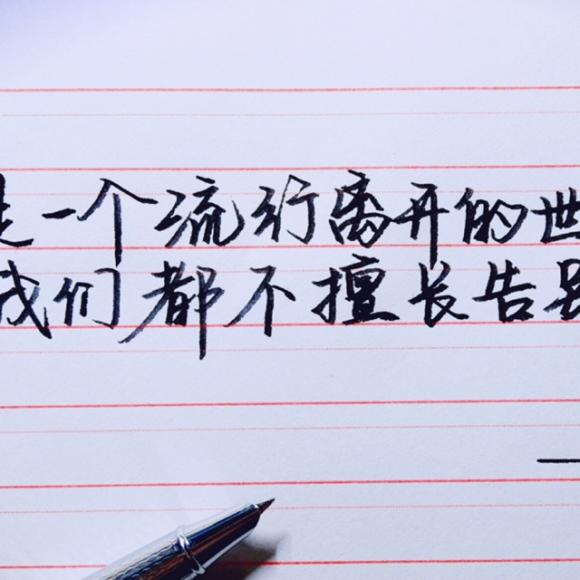 是一个流行离开的世
我们都不擅长告别